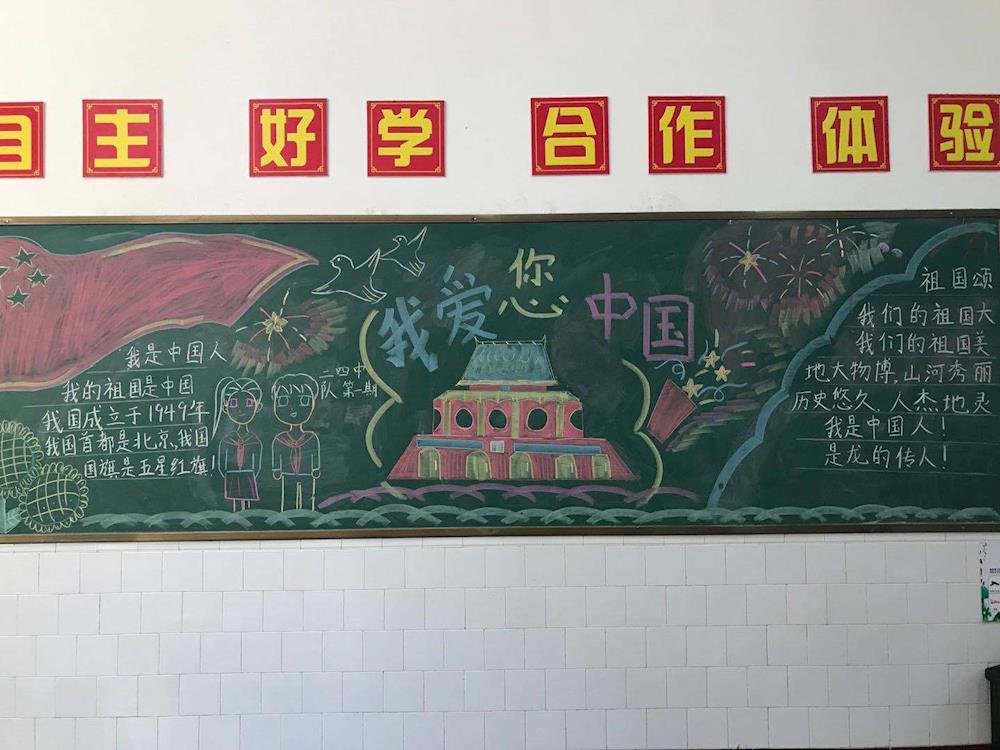 自主 好学 合作 体验
我爱您中国
我是中国人
我的祖国是中国
我国成立于1949年
我国首都是北京、我国
国旗是五星红旗!
二四中
队 第一期
祖国颂
我们的祖国大
我们的祖国美
地大物博,山河秀丽
历史悠久、人杰地灵
我是中国人!
是龙的传人!